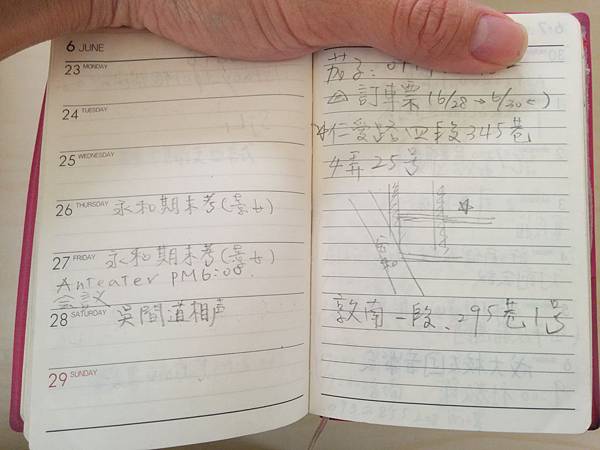 6 JUNE
23 MONDAY
24 TUESDAY
25 WEDNESDAY
26 THURSDAY 永和期末考(景女)
27 FRIDAY 永和期末考(景女)
Anteater PM6:00.
会议
28 SATURDAY 吳間道相声
29 SUNDAY
茂子:
訂車票(6/28→6/30)
☆仁愛路四段345巷
4弄25号
敦南一段、295巷1号